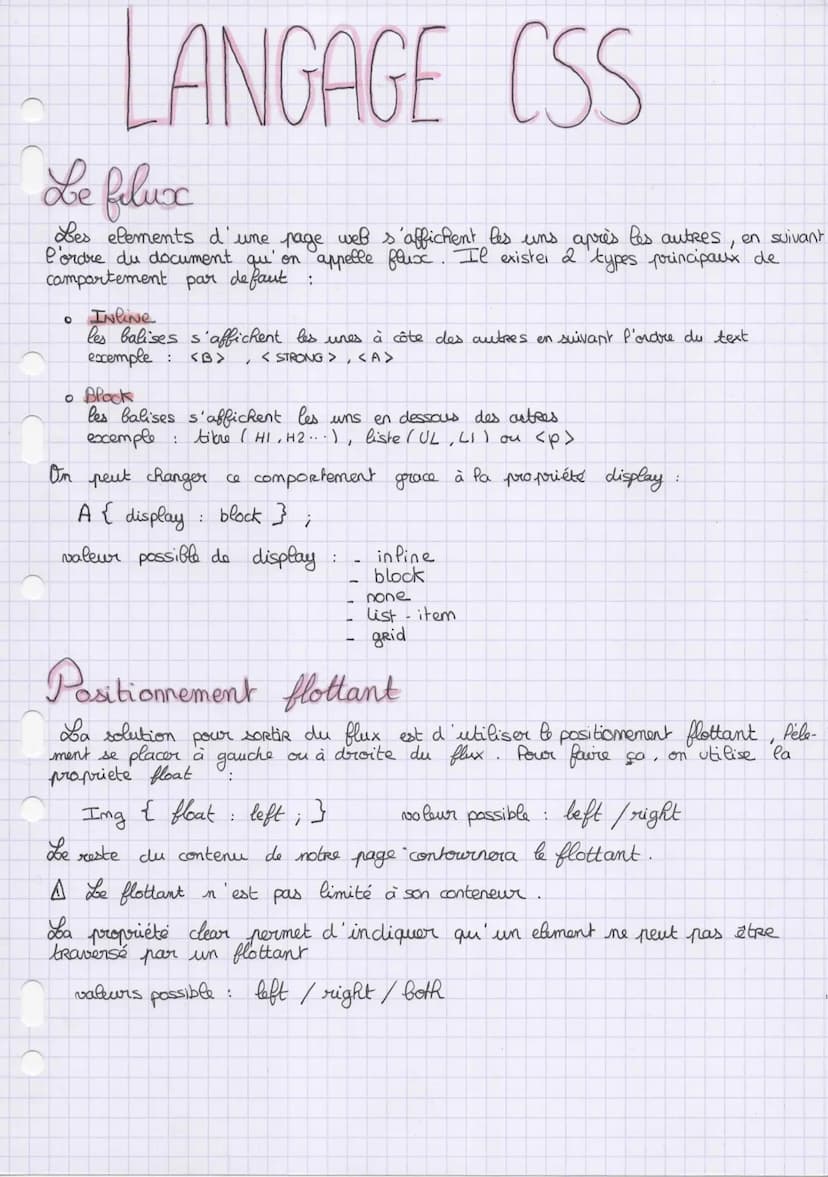 LANGAGE CSS
Le felux
Les elements d'une page web s'affichent les uns après les autres, en suivant
l'ordre du document qu'on appelle flux. Il existei 2 types principaux de
comportement par defaut :
Inline
les balises s'affichent les unes à côte des autres en suivant l'ordre du text
exemple : <B> , <STRONG> , <A>
Block
les balises s'affichent les uns en dessous des autres
exemple : titre ( H1, H2 ...), liste ( UL, LI ) ou <p>
On peut changer ce comportement grace à la propriété display :
A { display : block } ;
valeur possible de display : - inline
- block
- none
- list - item
- grid
Positionnement flottant
La solution pour sortir du flux est d'utiliser le positionnement flottant, l'éle-
ment se placer à gauche ou à droite du flux. Pour faire ça, on utilise la
propriete float :
Img { float : left ; } valeur possible : left / right
Le reste du contenu de notre page contournera le flottant.
⚠ Le flottant n'est pas limité à son conteneur.
La propriété clear permet d'indiquer qu'un element ne peut pas être
traversé par un flottant
valeurs possible : left / right / both